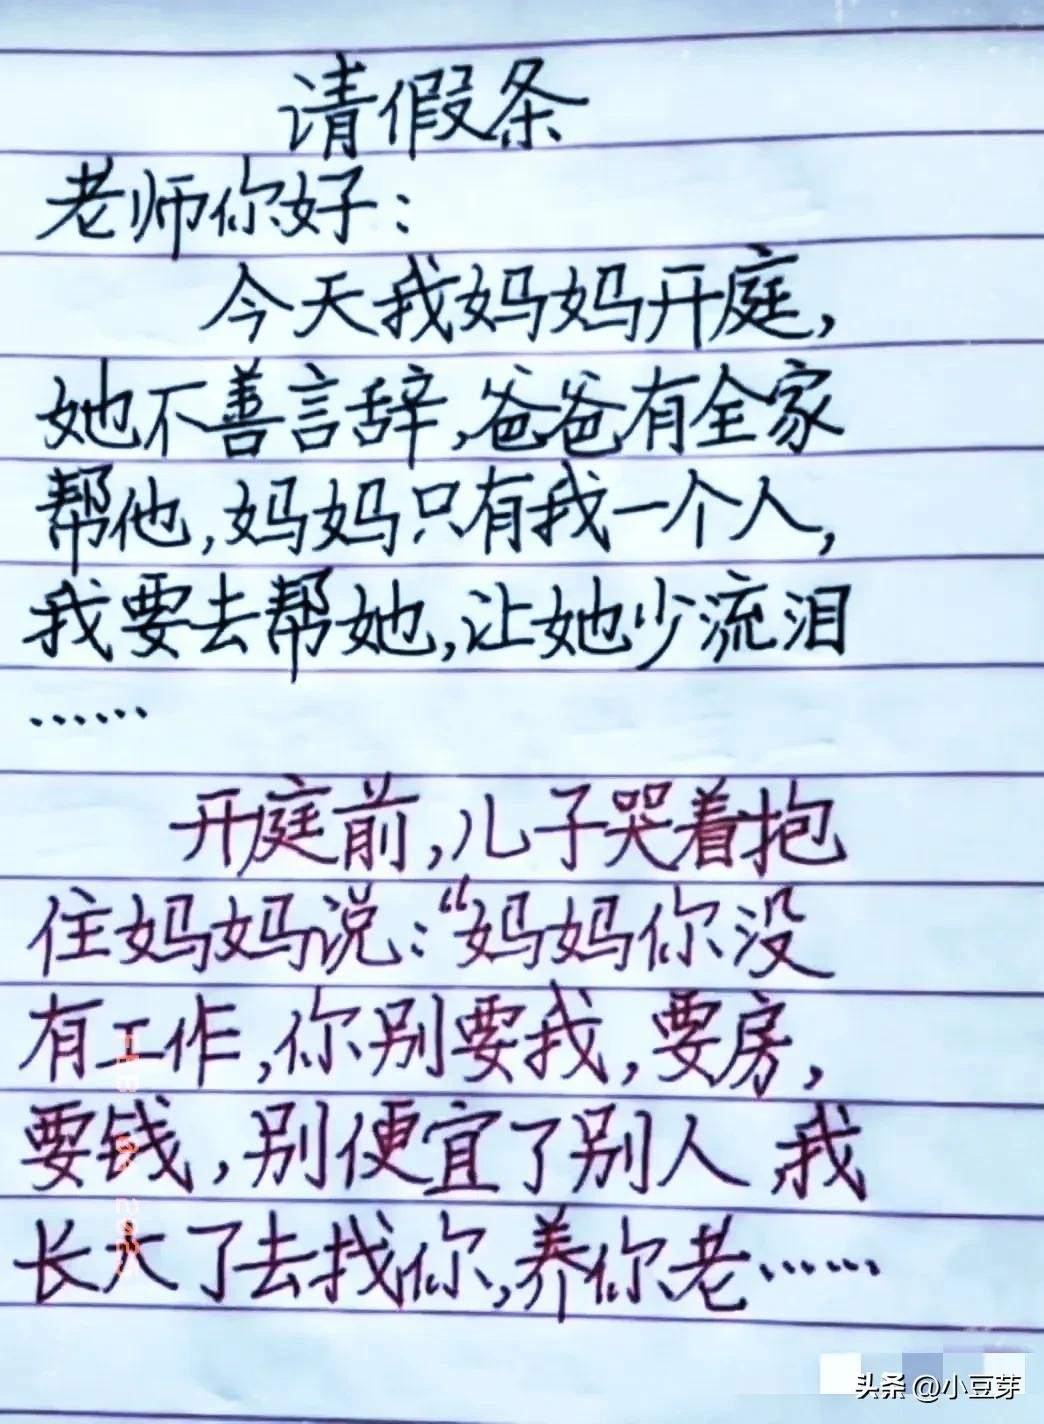 请假条
老师你好：
今天我妈妈开庭，
她不善言辞，爸爸有全家
帮他，妈妈只有我一个人，
我要去帮她，让她少流泪
……
开庭前，儿子哭着抱
住妈妈说：“妈妈你没
有工作，你别要我，要房，
要钱，别便宜了别人，我
长大了去找你，养你老……
头条 @小豆芽